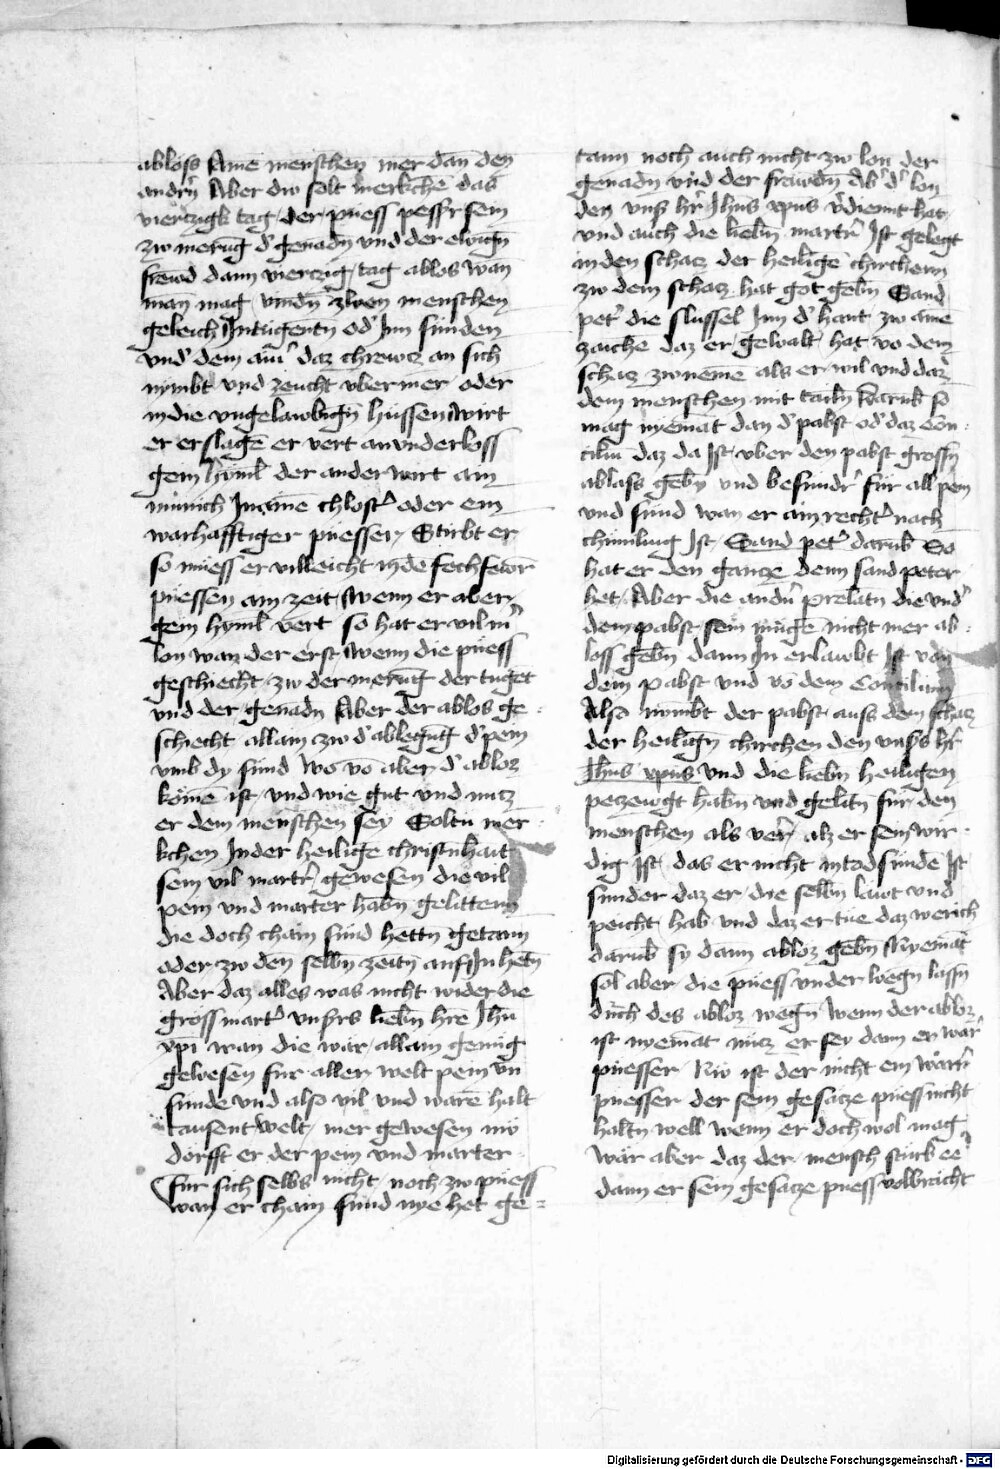 abloss Ame menschen mer dan den
andrn Aber dw solt merkchen das
viertzigk tag der puess pesser sein
zw merug d' genadn vnd der ewign
frewd dann viertzig tag ablos wan
man mag vindn zwen menschen
geleich In tugentn od' Inn sunden
vnd' dem ain' daz chrewcz an sich
nymbt vnd zeucht vber mer oder
in die vngelawbign hussen wirt
er erslage er vert an vnderloss
gem hyml der ander wirt ain
munich In aime chlost' oder ein
warhafftiger puesser Stirbt er
so muess er villeicht in de fechfewr
puessen ain zeit wenn er aber
gem hyml vert so hat er vil m'
lon wan der erst wenn die puess
geschiecht zw der merug der tuget
vnd der genadn Aber der ablos ge
schiecht allain zw d' ablegug d' pein
vmb dy sund wo vo aber d' abloz
kome ist vnd wie gut vnd nucz
er dem menschen sey Soltu mer
kchen In der heilige christnhait
sein vil martr gewesen die vil
pein vnd marter habn gelittenn
die doch chain sund hettn getann
oder zw den selbn zeitn auf In hetn
Aber daz alles was nicht wider die
gross mart' vnsrs liebn hre Ihu
xpi wan die war allain genug
gewesen fur aller welt pein vn
sunde vnd also vil vnd ware halt
tausent welt mer gewesen nw
dorfft er der pein vnd marter
fur sich selbs nicht noch zw puess
wan er chain sund nye het ge
tann noch auch nicht zw lon der
genadn vnd der frewdn Ab' d' lon
den vns hr Ihus xpus v'dient hat
vnd auch die liebn martr Ist gelegt
in den schacz der heilige chirchenn
zw dem schacz hat got gebn Sand
pet' die slussel Inn d' hant zw aine
zaiche daz er gewalt hat vo dem
schacz zw neme als er wil vnd daz
dem menschen mit tailn Darub so
mag nyemat dan d' pabst od' daz Con
ciliu daz da Ist vber den pabst grossn
ablass gebn vnd besundr fur all pein
vnd sund wan er ain recht' nach
chumling Ist Sand pet' darub So
hat er den gancze denn sand peter
het Aber die andn prelatn die vnd'
dem pabst sein muge nicht mer ab
loss gebn dann In erlawbt Ist von
dem pabst vnd vo dem Concilium
Also nymbt der pabst auss dem schacz
der heilign chirchen den vnss hr
Ihus xpus vnd die liebn heiligen
peczewgt habn vnd gelitn fur den
menschen als verr alz er sein wir
dig Ist das er nicht in tod sunde Ist
sunder daz er die selbn lawt vnd
peicht hab vnd daz er tue daz werich
darub sy dann abloz gebn Nyemat
sol aber die puess vnder wegn lassn
durch des abloz wegn wenn der abloz
ist nyemat nucz er sey dann ein war
puesser Nw ist der nicht ein warr
puesser der sein gesacze puess nicht
haltn well wenn er doch wol mag
wär aber daz der mensch stürb ee
dann er sein gesacze puess volbracht
Digitalisierung gefördert durch die Deutsche Forschungsgemeinschaft - DFG